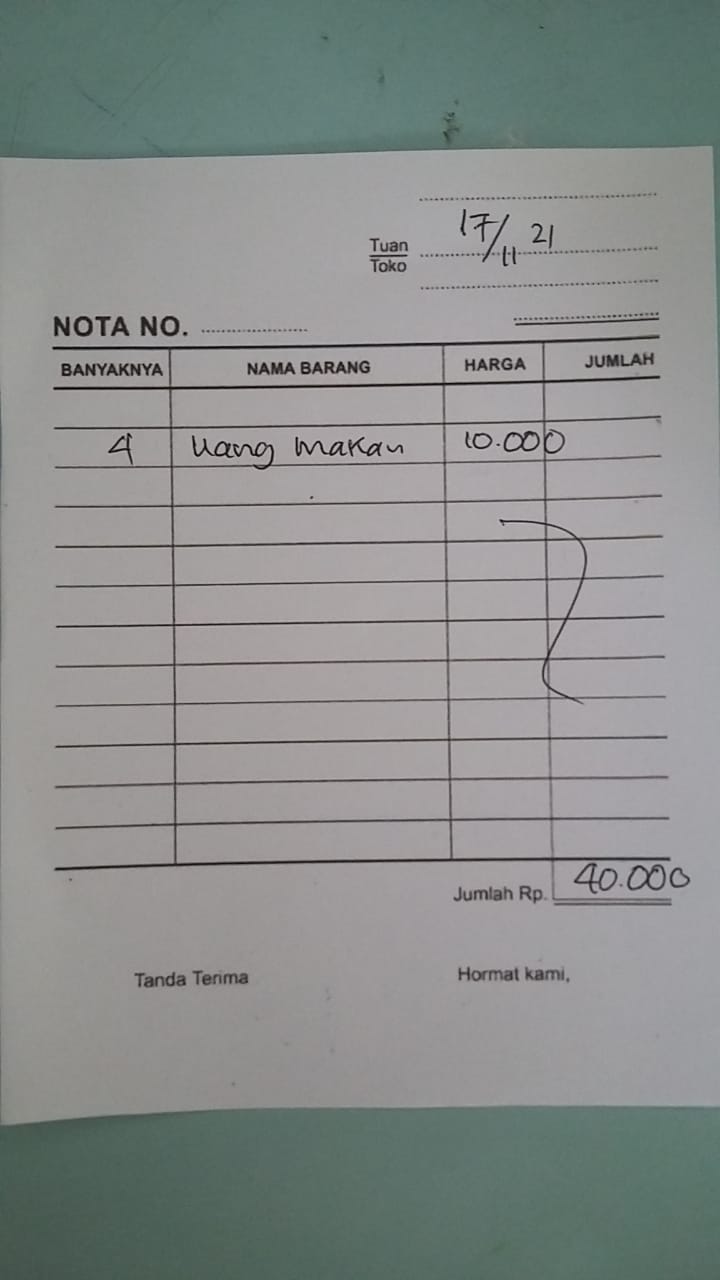 17/11 21
Tuan
Toko
NOTA NO.
BANYAKNYA NAMA BARANG HARGA JUMLAH
4 Uang makan 10.000
Jumlah Rp. 40.000
Tanda Terima Hormat kami,